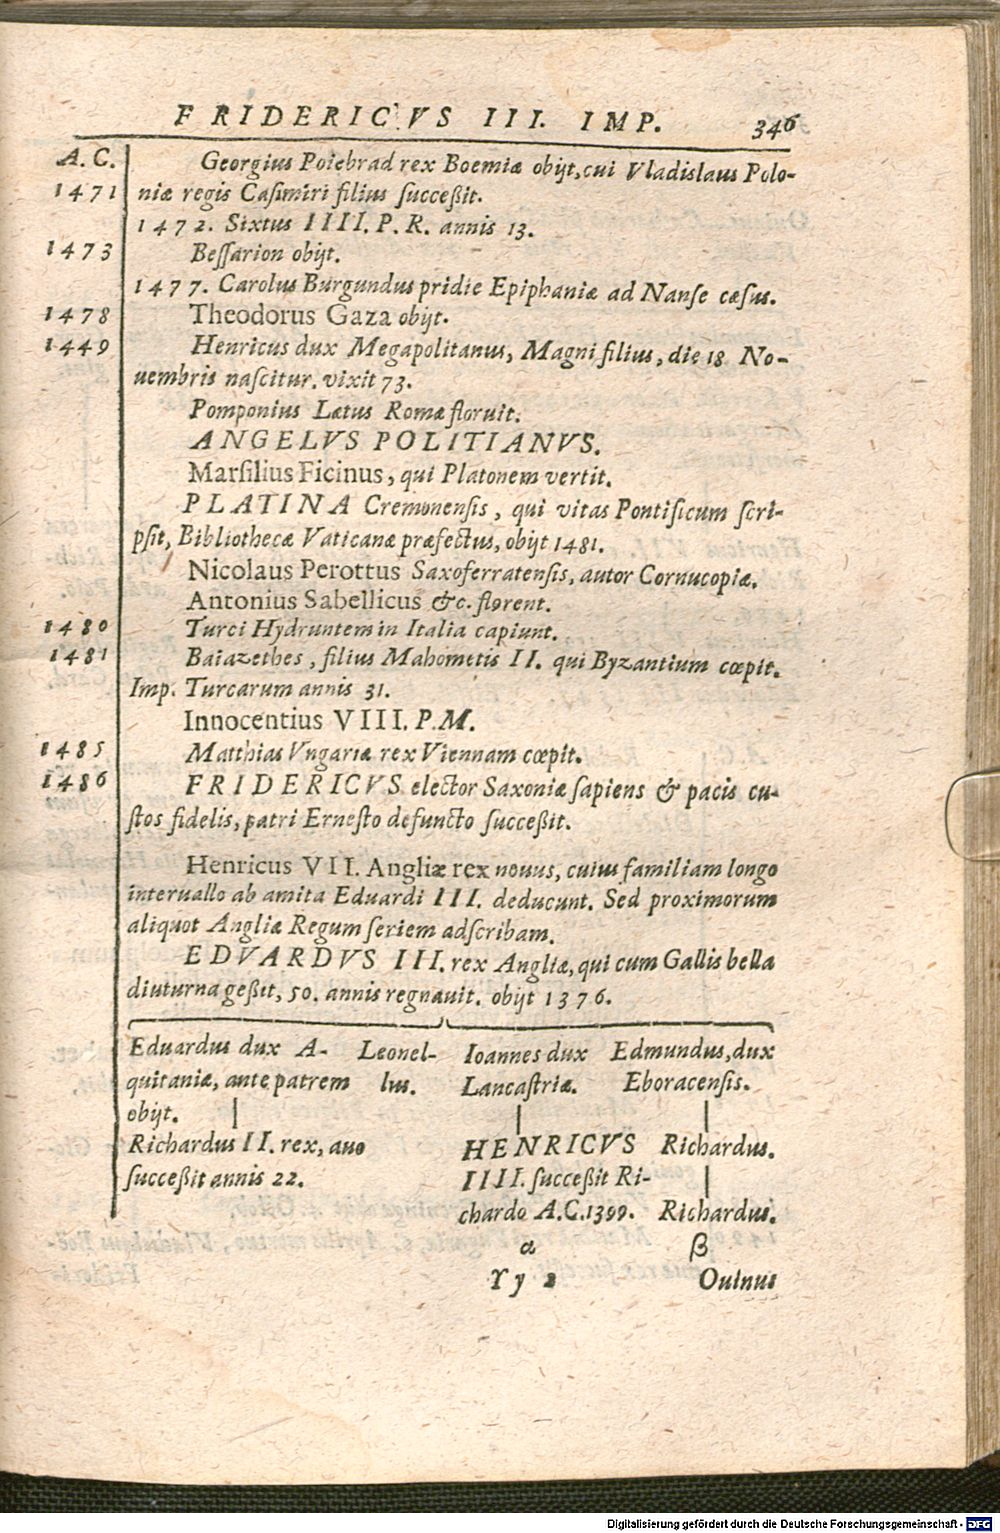 FRIDERICVS III. IMP. 346
A. C. Georgius Poiebrad rex Boemiæ obijt, cui Vladislaus Polo-
1471 niæ regis Casimiri filius succeßit.
1472. Sixtus IIII. P. R. annis 13.
1473 Beſſarion obijt.
1477. Carolus Burgundus pridie Epiphaniæ ad Nanſe cæſus.
1478 Theodorus Gaza obijt.
1449 Henricus dux Megapolitanus, Magni filius, die 18 No-
uembris naſcitur. vixit 73.
Pomponius Lætus Romæ floruit.
ANGELVS POLITIANVS.
Marſilius Ficinus, qui Platonem vertit.
PLATINA Cremonenſis, qui vitas Pontificum ſcri-
pſit, Bibliothecæ Vaticanæ præfectus, obijt 1481.
Nicolaus Perottus Saxoferratenſis, autor Cornucopiæ.
Antonius Sabellicus &c. florent.
1480 Turci Hydruntem in Italia capiunt.
1481 Baiazethes, filius Mahometis II. qui Byzantium cœpit.
Imp. Turcarum annis 31.
Innocentius VIII. P. M.
1485 Matthias Vngariæ rex Viennam cœpit.
1486 FRIDERICVS elector Saxoniæ ſapiens & pacis cu-
ſtos fidelis, patri Erneſto defuncto ſucceßit.
Henricus VII. Angliæ rex nouus, cuius familiam longo
interuallo ab amita Eduardi III. deducunt. Sed proximorum
aliquot Angliæ Regum ſeriem adſcribam.
EDVARDVS III. rex Angliæ, qui cum Gallis bella
diuturna geßit, 50. annis regnauit. obijt 1376.
Eduardus dux A- Leonel- Ioannes dux Edmundus, dux
quitaniæ, ante patrem lus. Lancaſtriæ. Eboracenſis.
obijt.
Richardus II. rex, auo HENRICVS Richardus.
ſucceßit annis 22. IIII. ſucceßit Ri-
chardo A.C. 1399. Richardus.
α β
Yy 2 Ouinus
Digitalisierung gefördert durch die Deutsche Forschungsgemeinschaft - DFG